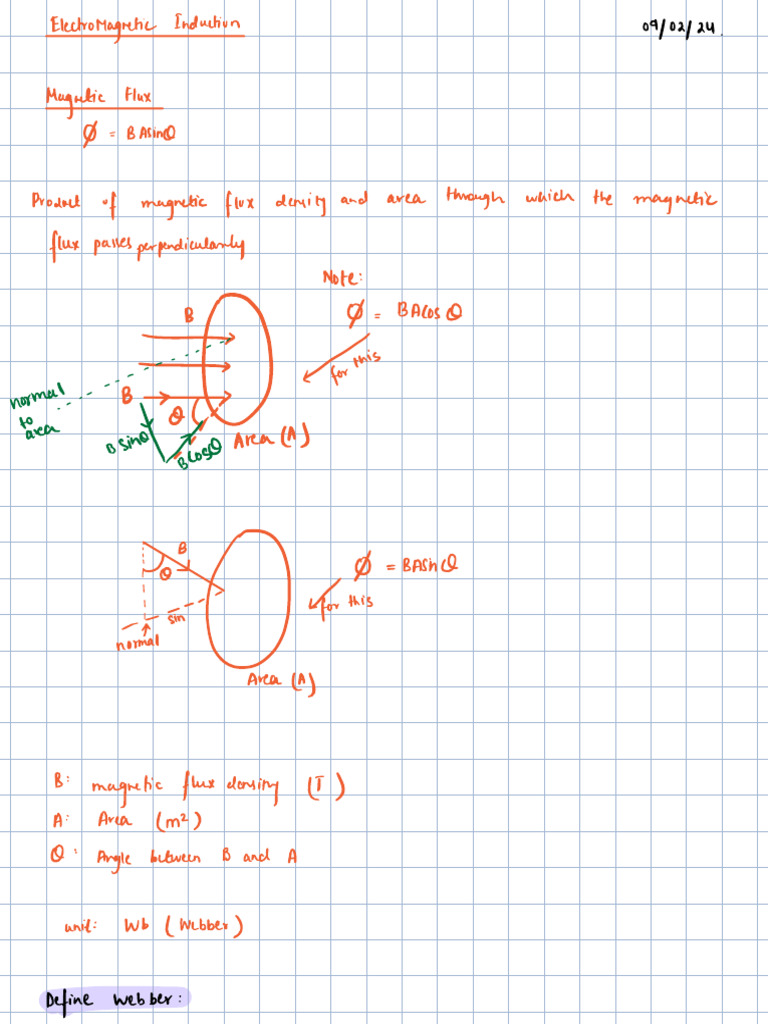 ElectroMagnetic Induction
09/02/24.
Magnetic Flux
Ø = BAsinθ
Product of magnetic flux density and area through which the magnetic
flux passes perpendicularly
Note:
B
Ø = BACosθ
for this
normal
to
area
B
θ
B sinθ
BCosθ
Area (A)
B
θ
Ø = BASinθ
for this
sin
normal
Area (A)
B: magnetic flux density (T)
A: Area (m²)
θ: Angle between B and A
unit: Wb (Webber)
Define Webber: